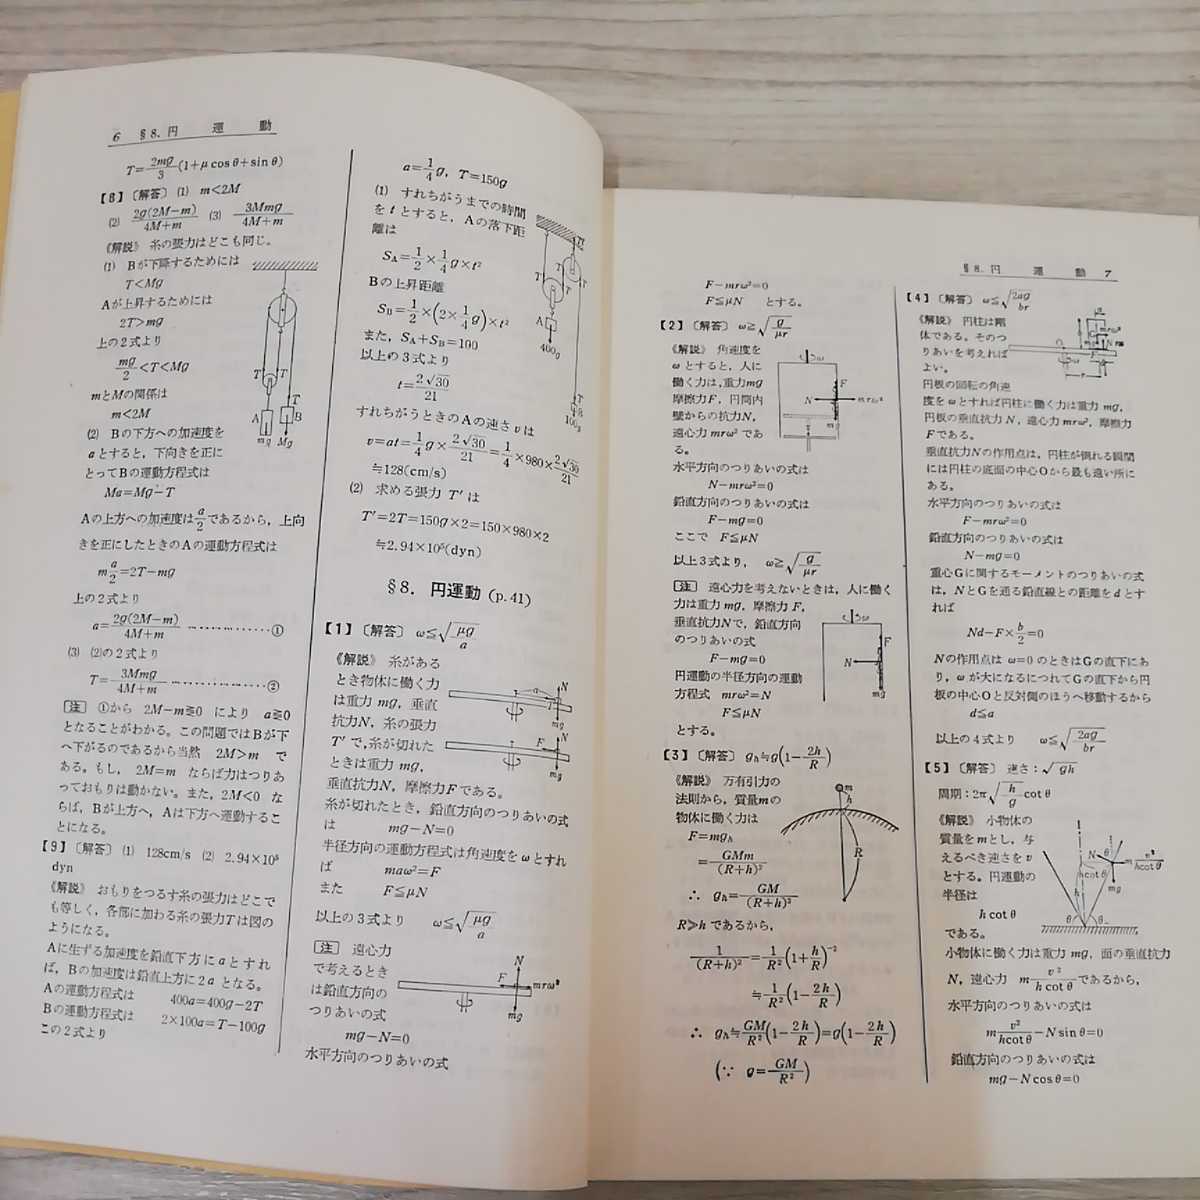 6 §8. 円 運 動
T=2mg/3(1+μcosθ+sinθ)
【8】〔解答〕 (1) m<2M
(2) 2g(2M−m)/4M+m (3) 3Mmg/4M+m
《解説》 糸の張力はどこも同じ。
(1) Bが下降するためには
T<Mg
Aが上昇するためには
2T>mg
上の2式より
mg/2<T<Mg
mとMの関係は
m<2M
(2) Bの下方への加速度を
aとすると, 下向きを正に
とってBの運動方程式は
Ma=Mg−T
Aの上方への加速度はa/2であるから, 上向
きを正にしたときのAの運動方程式は
m a/2=2T−mg
上の2式より
a=2g(2M−m)/4M+m ……………①
(3) (2)の2式より
T=3Mmg/4M+m ……………②
[注] ①から 2M−m≷0 により a≷0
となることがわかる。この問題ではBが下
へ下がるのであるから当然 2M>m で
ある。もし, 2M=m ならば力はつりあ
っておもりは動かない。また, 2M<0 な
らば, Bが上方へ, Aは下方へ運動するこ
とになる。
【9】〔解答〕 (1) 128cm/s (2) 2.94×10⁵
dyn
《解説》 おもりをつるす糸の張力はどこで
も等しく, 各部に加わる糸の張力Tは図の
ようになる。
Aに生ずる加速度を鉛直下方にaとすれ
ば, Bの加速度は鉛直上方に2aとなる。
Aの運動方程式は 400a=400g−2T
Bの運動方程式は 2×100a=T−100g
この2式より
T T T
A B
mg Mg
a=1/4 g, T=150g
(1) すれちがうまでの時間
をtとすると, Aの落下距
離は
S_A=1/2×1/4 g×t²
Bの上昇距離
S_B=1/2×(2×1/4 g)×t²
また, S_A+S_B=100
以上の3式より
t=2√30/21
すれちがうときのAの速さvは
v=at=1/4 g×2√30/21=1/4×980×2√30/21
≒128(cm/s)
(2) 求める張力 T′は
T′=2T=150g×2=150×980×2
≒2.94×10⁵(dyn)
T T T
A
400g
100g
§8. 円運動 (p.41)
【1】〔解答〕 ω≦√μg/a
《解説》 糸がある
とき物体に働く力
は重力 mg, 垂直
抗力N, 糸の張力
T′で, 糸が切れた
ときは重力 mg,
垂直抗力N, 摩擦力Fである。
糸が切れたとき, 鉛直方向のつりあいの式
は mg−N=0
半径方向の運動方程式は角速度をωとすれ
ば maω²=F
また F≦μN
以上の3式より ω≦√μg/a
[注] 遠心力
で考えるとき
は鉛直方向の
つりあいの式
mg−N=0
水平方向のつりあいの式
a N
mg
F N
mg
N
F mrω²
mg
§8. 円 運 動 7
F−mrω²=0
F≦μN とする。
【2】〔解答〕 ω≧√g/μr
《解説》 角速度を
ωとすると, 人に
働く力は, 重力mg
摩擦力F, 円筒内
壁からの抗力N,
遠心力 mrω² であ
る。
水平方向のつりあいの式は
N−mrω²=0
鉛直方向のつりあいの式は
F−mg=0
ここで F≦μN
以上3式より, ω≧√g/μr
[注] 遠心力を考えないときは, 人に働く
力は重力 mg, 摩擦力 F,
垂直抗力Nで, 鉛直方向
のつりあいの式
F−mg=0
円運動の半径方向の運動
方程式 mrω²=N
F≦μN
とする。
ω
F
N mrω²
mg
ω
F
N
mg
【3】〔解答〕 g_h≒g(1−2h/R)
《解説》 万有引力の
法則から, 質量mの
物体に働く力は
F=mg_h
=GMm/(R+h)²
∴ g_h=GM/(R+h)²
R≫h であるから,
1/(R+h)²=1/R²(1+h/R)⁻²
≒1/R²(1−2h/R)
∴ g_h≒GM/R²(1−2h/R)=g(1−2h/R)
(∵ g=GM/R²)
m
h
R
【4】〔解答〕 ω≦√2ag/br
《解説》 円柱は剛
体である。そのつ
りあいを考えれば
よい。
円板の回転の角速
度をωとすれば円柱に働く力は重力 mg,
円板の垂直抗力 N, 遠心力 mrω², 摩擦力
Fである。
垂直抗力Nの作用点は, 円柱が倒れる瞬間
には円柱の底面の中心Oから最も遠い所に
ある。
水平方向のつりあいの式は
F−mrω²=0
鉛直方向のつりあいの式は
N−mg=0
重心Gに関するモーメントのつりあいの式
は, NとGを通る鉛直線との距離をdとす
れば
Nd−F×b/2=0
Nの作用点は ω=0 のときはGの直下にあ
り, ωが大になるにつれてGの直下から円
板の中心Oと反対側のほうへ移動するから
d≦a
以上の4式より ω≦√2ag/br
mrω²
【5】〔解答〕 速さ:√gh
周期:2π√h/g cotθ
《解説》 小物体の
質量をmとし, 与
えるべき速さをv
とする。円運動の
半径は
h cotθ
である。
小物体に働く力は重力 mg, 面の垂直抗力
N, 遠心力 m v²/h cotθ であるから,
水平方向のつりあいの式は
m v²/hcotθ−N sinθ=0
鉛直方向のつりあいの式は
mg−N cosθ=0
N θ
m v²/hcotθ
hcotθ
mg
h
θ θ